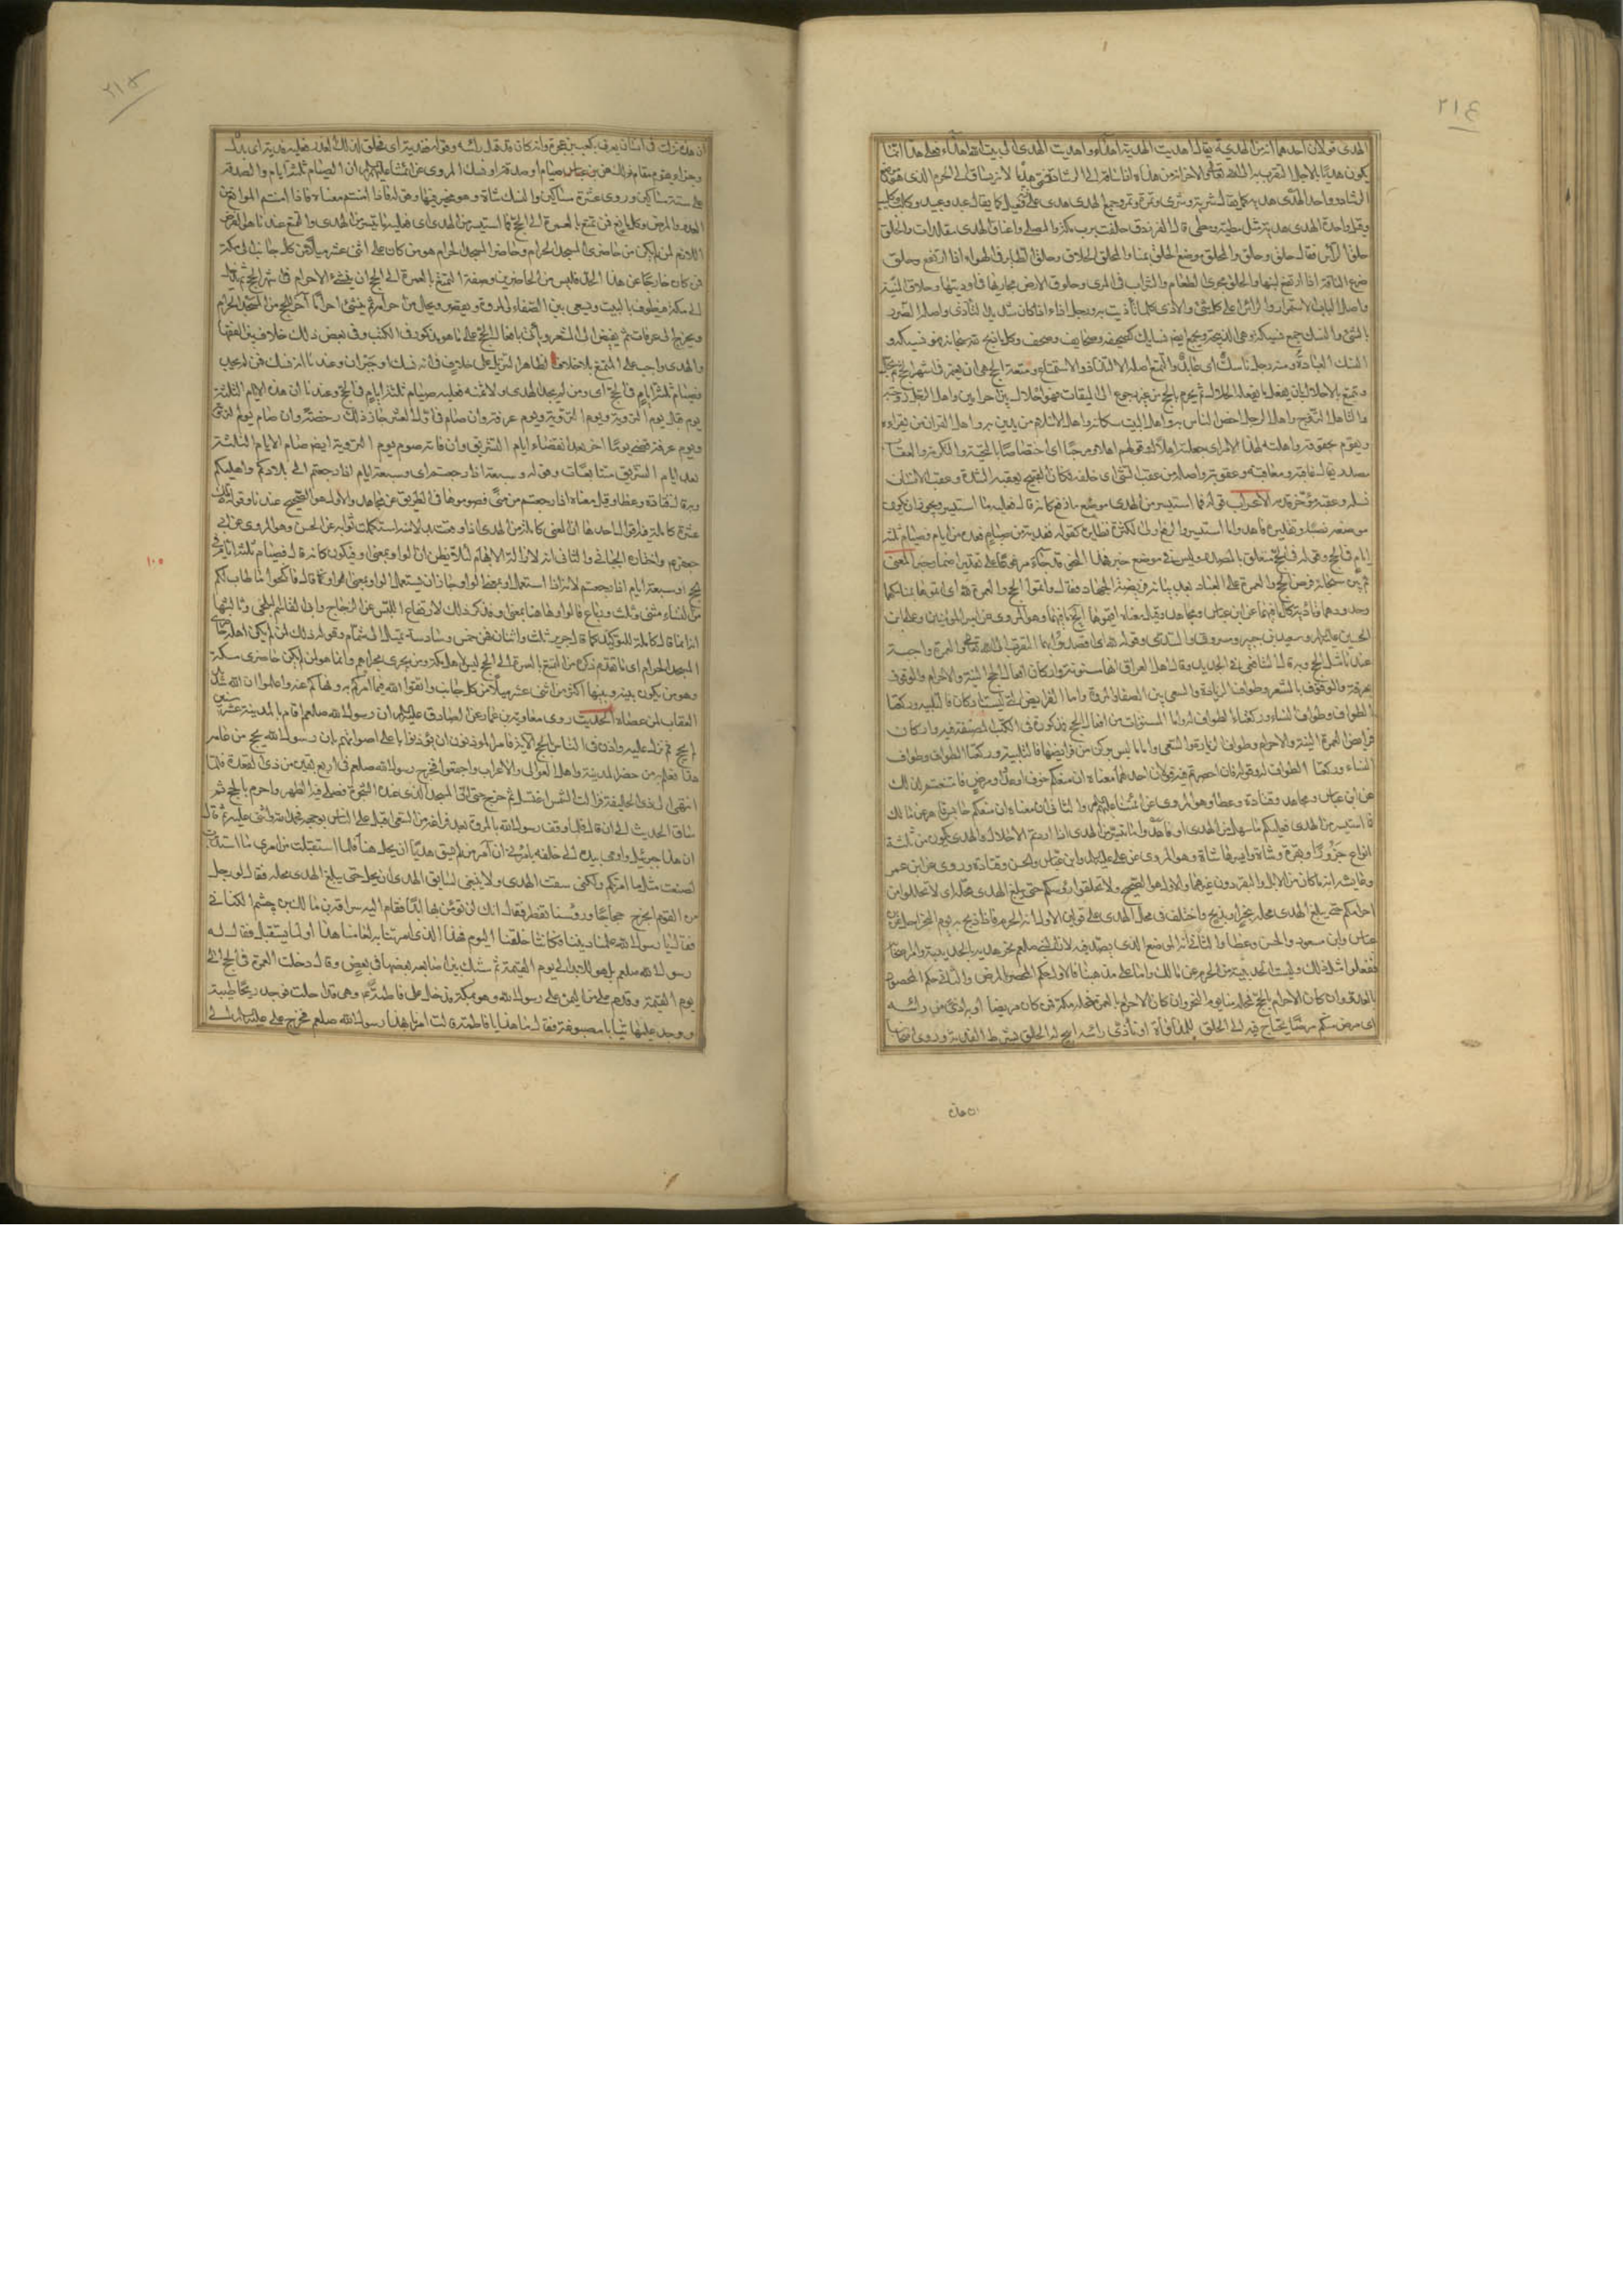 ٢١٤
الهدى قولان احدهما انه من الهدية يقال اهديت الهدية اهداء واهديت الهدى الى بيت الله اهداء فعلى هذا انما
يكون هديا لاجل التقرب به الى الله تعالى والاخر انه من هداه اذا ساقه الى الرشاد فسمى هديا لانه يساق الى الحرم الذى هو موضع
الرشاد وواحد الهدى هدية كما يقال شرية وشرى وتمرة وتمر وجمع الهدى هدى على فعيل كما يقال عبد وعبيد وكلب وكليب
وقيل واحدة الهدى هدية مثل مطية ومطى قال الفرزدق حلفت برب مكة والمصلى واعناق الهدى مقلدات والحلق
حلق الراس فقال حلق وحلق والمحلق موضع الحلق بمنا والمحلق الحلاق وحلق الطاير فى الهواء اذا ارتفع وحلق
ضرع الناقة اذا ارتفع لبنها والحلق مجرى الطعام والشراب فى المرى وحلوق الارض مجاريها فى اوديتها وحلاق المنية
واصل الباب الاستمرار والراس اعلى كل شئ والاذى كلما تأذيت به ورجل اذ اذا كان شديد التأذى واصله الضرر
بالشئ والنسك جمع نسيكة وهى الذبيحة ويجمع ايضا نسايك كصحيفة وصحايف وصحف وكلما ذبح لله سبحانه فهو نسيكة و
النسك العبادة ومنه رجل ناسك اى عابد والتمتع اصله الالتذاذ والاستمتاع ومتعة الحج هى ان يعتمر فى اشهر الحج ثم يحل
ويتمتع بالاحلال بان يفعل ما يفعله الحلال ثم يحرم بالحج من غير رجوع الى الميقات فهو احلال بين احرامين واهل الرجل زوجته
والتاهل التزوج واهل الرجل اخص الناس به واهل البيت سكانه واهل الاسلام من يدين به واهل القران من يقراه
ويقوم بحقوقه واهلته لهذا الامر اى جعلته اهلا له وقولهم اهلا ومرحبا اى اختصاصا بالتحية والتكرمة والعقاب
مصدر يقال عاقبه معاقبة وعقوبة واصله من عقب الشئ اى خلفه فكان القبيح يعقبه الشدة وعقب الانسان
نسله وعقبه مؤخر قدمه الاعراب قوله فما استيسر من الهدى موضع ما رفع كانه قال فعليه ما استيسر ويجوز ان يكون
موضعه نصبا وتقديره فاهدوا ما استيسر والرفع اولى لكثرة نظايره كقوله ففدية من صيام فعدة من ايام فصيام ثلثة
ايام فى الحج وقوله فى الحج متعلق بالمصدر وليس فى موضع خبر المعنى
ثم بين سبحانه فرض الحج والعمرة على العباد بعد بيانه فريضة الجهاد فقال واتموا الحج والعمرة لله اى اتموهما بمناسكهما
وحدودهما وتأدية كل ما فيهما عن ابن عباس ومجاهد وقيل معناه اقيموهما الى اخر ما فيهما وهو المروى عن امير المؤمنين وعلى بن
الحسين عليهما السلام وسعيد بن جبير ومسروق والسدى وقوله لله اى اقصدوا بهما التقرب الى الله تعالى والعمرة واجبة
عندنا مثل الحج وبه قال الشافعى فى الجديد وقال اهل العراق انها مسنونة واركان افعال الحج النية والاحرام والوقوف
بعرفة والوقوف بالمشعر وطواف الزيارة والسعى بين الصفا والمروة واما الفرايض التى ليست باركان فالتلبية وركعتا
الطواف وطواف النساء وركعتا الطواف له واما المسنونات من افعال الحج فمذكورة فى الكتب المصنفة فيه واركان
فرايض العمرة النية والاحرام وطواف الزيارة والسعى واما ما ليس بركن من فرايضها فالتلبية وركعتا الطواف وطواف
النساء وركعتا الطواف له وقوله فان احصرتم فيه قولان احدهما معناه ان منعكم خوف او عدو او مرض فامتنعتم لذلك
عن ابن عباس ومجاهد وقتادة وعطا وهو المروى عن ائمتنا عليهم السلام والثانى ان معناه ان منعكم حابس قاهر عن مالك
فما استيسر من الهدى فعليكم ما سهل من الهدى او فاهدوا ما تيسر من الهدى اذا اردتم الاحلال والهدى يكون من ثلثة
انواع جزورا وبقرة وشاة وايسرها شاة وهو المروى عن على عليه السلام وابن عباس والحسن وقتادة وروى عن ابن عمر
وعايشة انه ما كان من الابل والبقر دون غيرهما والاول هو الصحيح ولا تحلقوا رؤسكم حتى يبلغ الهدى محله اى لا تحللوا من
احرامكم حتى يبلغ الهدى محله وينحر او يذبح واختلف فى محل الهدى على قولين الاول انه الحرم فاذا ذبح به يوم النحر احل عن ابن
عباس وابن مسعود والحسن وعطا والثانى انه الموضع الذى يصد فيه لان النبى صلعم نحر هديه بالحديبية وامر اصحابه
ففعلوا مثل ذلك وليست الحديبية من الحرم عن مالك واما على مذهبنا فالاول حكم المحصر بالمرض والثانى حكم المحصور
بالعدو وان كان الاحرام بالحج فمحله منا يوم النحر وان كان الاحرام بالعمرة فمحله مكة فمن كان مريضا او به اذى من راسه
اى مرض منكم مرضا يحتاج فيه الى الحلق للمداواة او تأذى راسه ابيح له الحلق بشرط الفدية وروى اصحابنا
ان هذه
٢١٥
ان هذه نزلت فى انسان يعرف بكعب بن عجرة وانه كان قد قمل راسه وقوله ففدية اى فحلق لذلك العذر فعليه فدية اى بدل
وجزاء يقوم مقام ذلك من صيام او صدقة او نسك المروى عن ائمتنا عليهم السلام ان الصيام ثلثة ايام والصدقة
على ستة مساكين وروى عشرة مساكين والنسك شاة وهو مخير فيها وقوله فاذا امنتم معناه فاذا امنتم الموانع من
العدو والمرض وكل مانع فمن تمتع بالعمرة الى الحج فما استيسر من الهدى اى فعليه ما تيسر من الهدى والتمتع عندنا هو الفرض
اللازم لمن لم يكن من حاضرى المسجد الحرام وحاضر المسجد الحرام هو من كان على اثنى عشر ميلا من كل جانب الى مكة
فمن كان خارجا عن هذا الحد فليس من الحاضرين وصفة التمتع بالعمرة الى الحج ان ينشئ الاحرام فى اشهر الحج ثم يدخل
الى مكة فيطوف بالبيت ويسعى بين الصفا والمروة ويقصر ويحل من احرامه ثم ينشئ احراما آخر للحج من المسجد الحرام
ويخرج الى عرفات ثم يفيض الى المشعر ويأتى بافعال الحج على ما هو مذكور فى الكتب وفى بعض ذلك خلاف بين الفقهاء
والهدى واجب على المتمتع بلا خلاف لظاهر التنزيل على خلاف فى انه نسك او جبران وعندنا انه نسك فمن لم يجد
فصيام ثلثة ايام فى الحج اى ومن لم يجد الهدى ولا ثمنه فعليه صيام ثلثة ايام فى الحج وعندنا ان هذه الايام الثلثة
يوم قبل يوم التروية ويوم التروية ويوم عرفة وان صام فى اول العشر جاز ذلك رخصة وان صام يوم التروية
ويوم عرفة قضى يوما آخر بعد انقضاء ايام التشريق وان فاته صوم يوم التروية ايضا صام الايام الثلثة
بعد ايام التشريق متتابعات وقوله وسبعة اذا رجعتم اى وسبعة ايام اذا رجعتم الى بلادكم واهليكم
وبه قال قتادة وعطا وقيل معناه اذا رجعتم من منى فصوموها فى الطريق عن مجاهد والاول هو الصحيح عندنا وقوله تلك
عشرة كاملة فيه اقوال احدها ان المعنى كاملة من الهدى اذا وقعت بدلا منه استكملت ثوابه عن الحسن وهو المروى عن ابى
جعفر ع واختاره الجبائى والثانى انه لازالة الابهام لئلا يظن ان الواو بمعنى او فيكون كانه قال فصيام ثلثة ايام فى
الحج او سبعة ايام اذا رجعتم لانه اذا استعمل او بمعنى الواو جاز ان يستعمل الواو بمعنى او كما قال فانكحوا ما طاب لكم
من النساء مثنى وثلث ورباع فالواو هاهنا بمعنى او فذكر ذلك لارتفاع اللبس عن الزجاج وابى القاسم البلخى وثالثها
انه انما قال كاملة للتوكيد كما قال جرير ثلث واثنتان فهن خمس وسادسة تميل الى شمام وقوله ذلك لمن لم يكن اهله حاضرى
المسجد الحرام اى ما تقدم ذكره من التمتع بالعمرة الى الحج ليس لاهل مكة ومن يجرى مجراهم وانما هو لمن لم يكن حاضرى مكة
وهو من يكون بينه وبينها اكثر من اثنى عشر ميلا من كل جانب واتقوا الله فيما امركم به ونهاكم عنه واعلموا ان الله شديد
العقاب لمن عصاه الحديث روى معاوية بن عمار عن الصادق عليه السلام ان رسول الله صلعم اقام بالمدينة عشر سنين
لم يحج ثم نزل عليه واذن فى الناس بالحج الآية فامر المؤذنون ان يؤذنوا باعلى اصواتهم بان رسول الله يحج من عامه
هذا فعلم به من حضر المدينة واهل العوالى والاعراب واجتمعوا فخرج رسول الله صلعم فى اربع بقين من ذى القعدة فلما
انتهى الى ذى الحليفة فزالت الشمس اغتسل ثم خرج حتى اتى المسجد الذى عند الشجرة فصلى فيه الظهر واحرم بالحج ثم
ساق الحديث الى ان قال فلما وقف رسول الله بالمروة بعد فراغه من السعى اقبل على الناس بوجهه فحمد الله واثنى عليه ثم قال
ان هذا جبرئيل واومى بيده الى خلفه يامرنى ان آمر من لم يسق هديا ان يحل ولو استقبلت من امرى ما استدبرت
لصنعت مثل ما امرتكم ولكنى سقت الهدى ولا ينبغى لسايق الهدى ان يحل حتى يبلغ الهدى محله فقال له رجل
من القوم انخرج حجاجا ورؤسنا تقطر فقال انك لن تؤمن بها ابدا فقام اليه سراقة بن مالك بن جعشم الكنانى
فقال يا رسول الله علمنا ديننا فكاننا خلقنا اليوم فهذا الذى امرتنا به لعامنا هذا او لما يستقبل فقال له
رسول الله صلعم بل هو للابد الى يوم القيمة ثم شبك بين اصابعه بعضها فى بعض وقال دخلت العمرة فى الحج الى
يوم القيمة وقدم على من اليمن على رسول الله وهو بمكة فدخل على فاطمة ع وهى قد احلت فوجد ريحا طيبة
ووجد عليها ثيابا مصبوغة فقال ما هذا يا فاطمة قالت امرنا بهذا رسول الله صلعم فخرج على عليه السلام الى